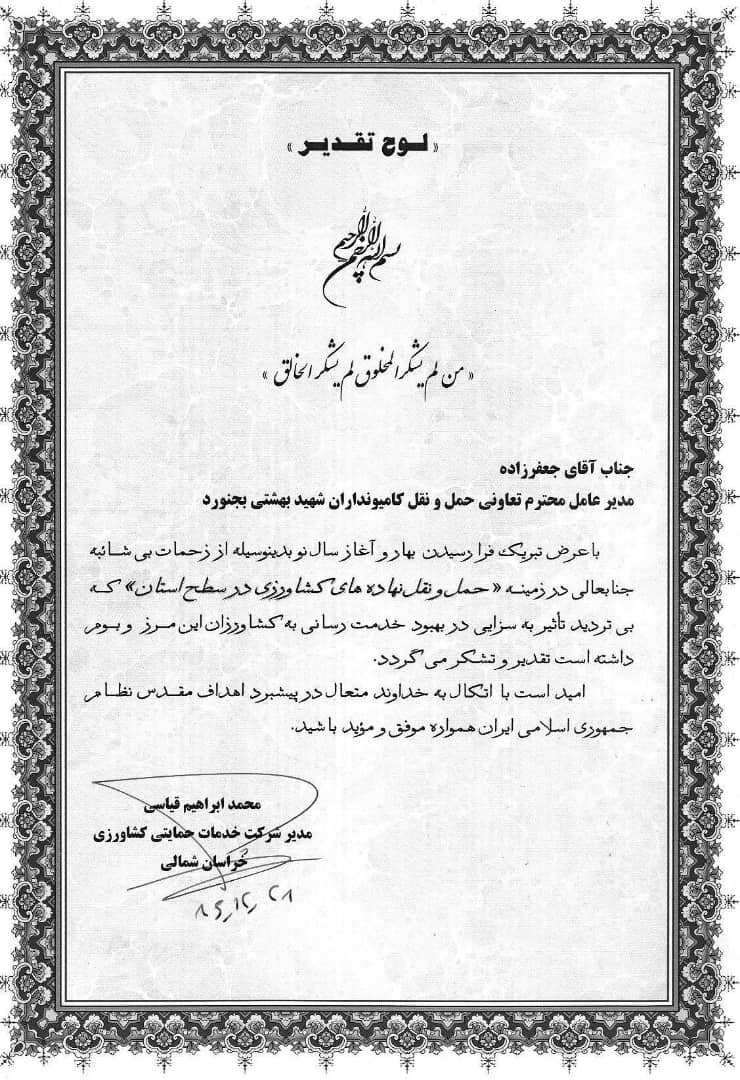 « لوح تقدیر »
بسم الله الرحمن الرحیم
« من لم یشکر المخلوق لم یشکر الخالق »
جناب آقای جعفرزاده
مدیر عامل محترم تعاونی حمل و نقل کامیونداران شهید بهشتی بجنورد
با عرض تبریک فرا رسیدن بهار و آغاز سال نو بدینوسیله از زحمات بی شائبه
جنابعالی در زمینه « حمل و نقل نهاده های کشاورزی در سطح استان » که
بی تردید تأثیر به سزایی در بهبود خدمت رسانی به کشاورزان این مرز و بوم
داشته است تقدیر و تشکر می گردد.
امید است با اتکال به خداوند متعال در پیشبرد اهداف مقدس نظام
جمهوری اسلامی ایران همواره موفق و مؤید باشید.
محمد ابراهیم قیاسی
مدیر شرکت خدمات حمایتی کشاورزی
خراسان شمالی